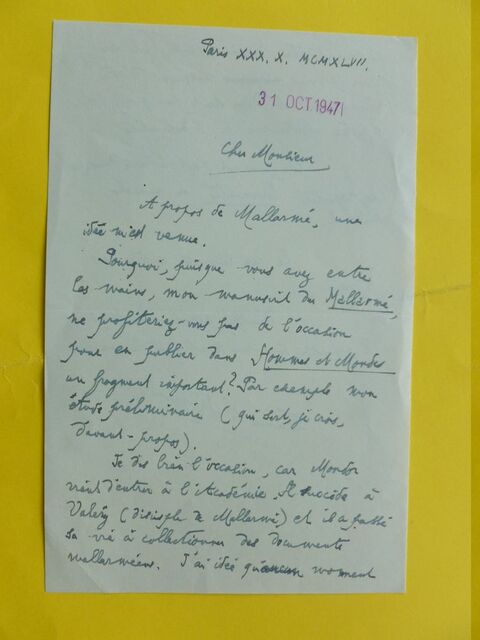 Paris XXX. X. MCMXLVII.
31 OCT 1947
Cher Monsieur
A propos de Mallarmé, une
idée m'est venue.
Pourquoi, puisque vous avez entre
les mains, mon manuscrit du Mallarmé,
ne profiteriez-vous pas de l'occasion
pour en publier dans Hommes et Mondes
un fragment important? Par exemple mon
étude préliminaire (qui sert, je crois,
d'avant-propos).
Je dis bien l'occasion, car Mondor
vient d'entrer à l'Académie. Il succède à
Valéry (disciple de Mallarmé) et il a passé
sa vie à collectionner des documents
mallarméens. J'ai idée qu'aucun moment